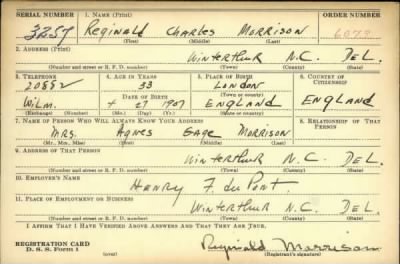 SERIAL NUMBER 1. NAME (Print) ORDER NUMBER
3257 Reginald Charles Morrison 6073
(First) (Middle) (Last)
2. ADDRESS (Print)
Winterthur N.C. DEL.
(Number and street or R. F. D. number) (Town) (County) (State)
3. TELEPHONE 4. AGE IN YEARS 5. PLACE OF BIRTH 6. COUNTRY OF CITIZENSHIP
20852 33 LONDON
DATE OF BIRTH (Town or county)
Wilm. 27 1907 ENGLAND ENGLAND
(Exchange) (Number) (Mo.) (Day) (Yr.) (State or country)
7. NAME OF PERSON WHO WILL ALWAYS KNOW YOUR ADDRESS 8. RELATIONSHIP OF THAT PERSON
Mrs. Agnes Gage Morrison
(Mr., Mrs., Miss) (First) (Middle) (Last)
9. ADDRESS OF THAT PERSON
Winterthur N.C. DEL.
(Number and street or R. F. D. number) (Town) (County) (State)
10. EMPLOYER'S NAME
Henry F. du Pont
11. PLACE OF EMPLOYMENT OR BUSINESS
Winterthur N.C. DEL.
(Number and street or R. F. D. number) (Town) (County) (State)
I AFFIRM THAT I HAVE VERIFIED ABOVE ANSWERS AND THAT THEY ARE TRUE.
REGISTRATION CARD Reginald Morrison
D. S. S. Form 1 (over) (Registrant's signature)